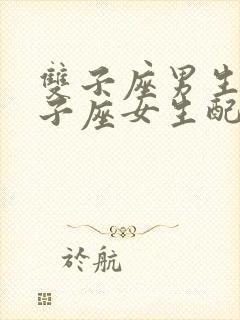 雙子座男生
子座女生配
於航